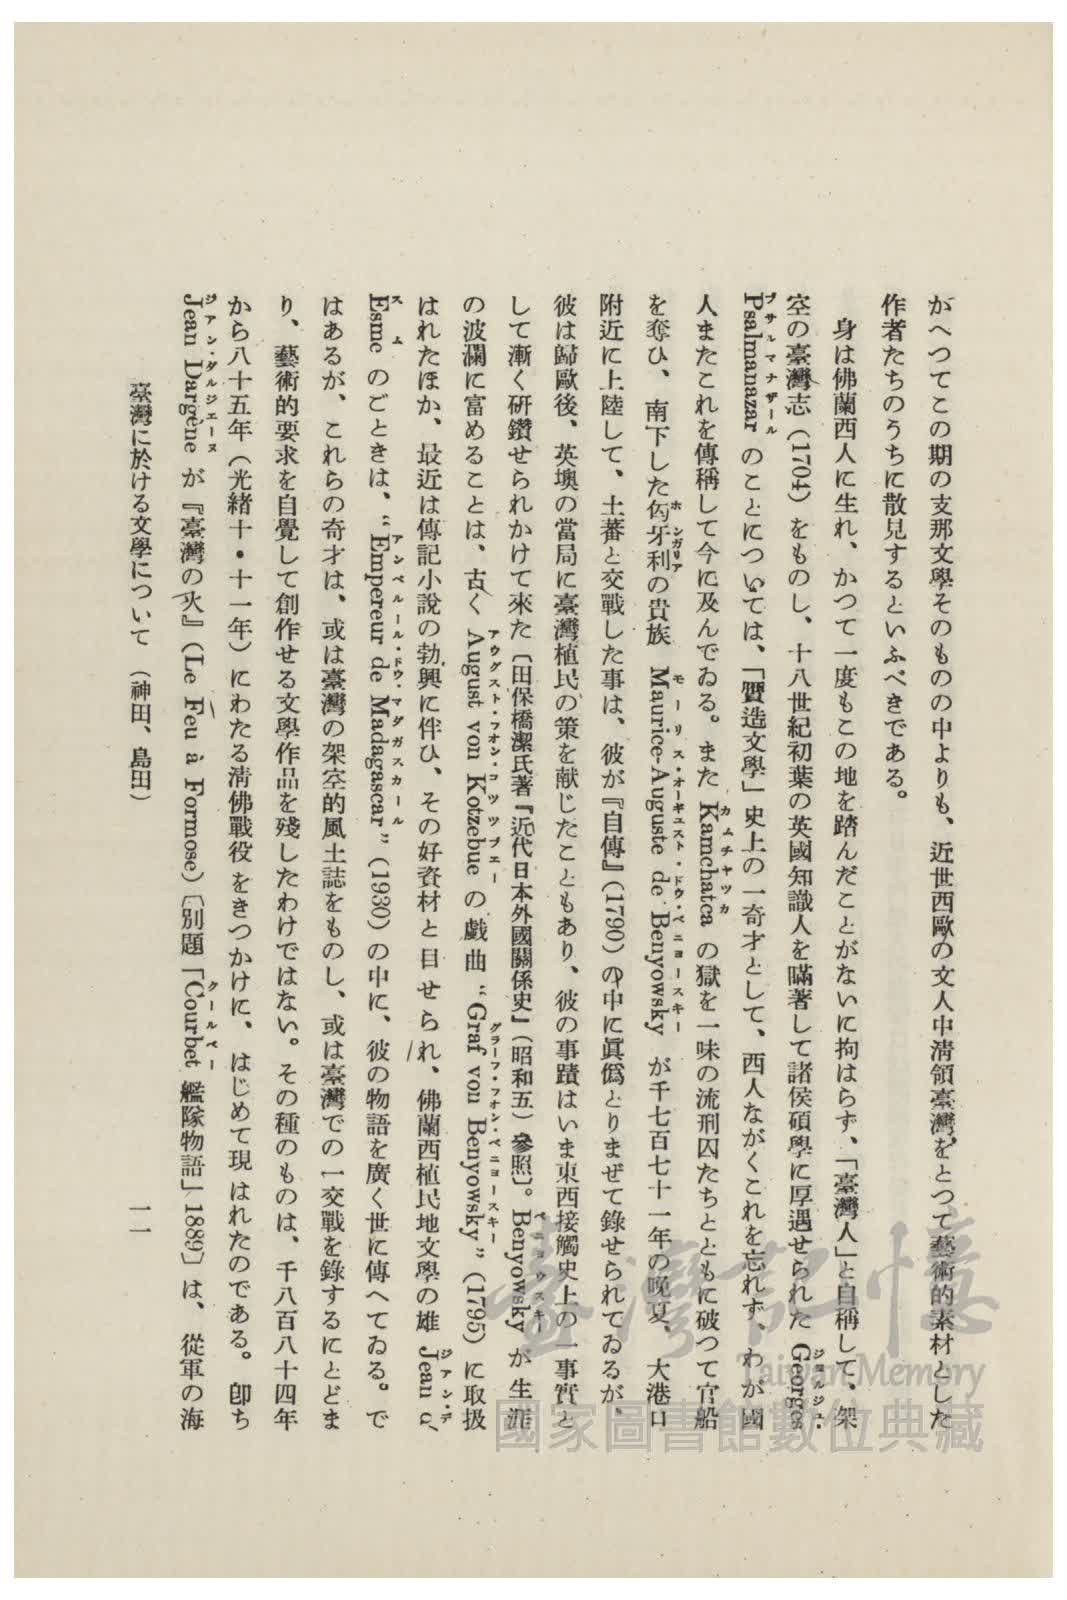 がへつてこの期の支那文學そのものの中よりも、近世西歐の文人中淸領臺灣をとつて藝術的素材とした
作者たちのうちに散見するといふべきである。
身は佛蘭西人に生れ、かつて一度もこの地を踏んだことがないに拘はらず、「臺灣人」と自稱して、架
空の臺灣志（1704）をものし、十八世紀初葉の英國知識人を瞞著して諸侯碩學に厚遇せられた Georges
ジョルジュ・
Psalmanazar のことについては、「贋造文學」史上の一奇才として、西人ながくこれを忘れず、わが國
プサルマナザール
人またこれを傳稱して今に及んでゐる。また Kamchatca の獄を一味の流刑囚たちとともに破つて官船
カムチヤツカ
を奪ひ、南下した匈牙利の貴族 Maurice-Auguste de Benyowsky が千七百七十一年の晩夏、大港口
ホンガリア
モーリス・オーギュスト・ドゥ・ベニヨースキー
附近に上陸して、土蕃と交戰した事は、彼が『自傳』（1790）の中に眞僞とりまぜて錄せられてゐるが、
彼は歸歐後、英墺の當局に臺灣植民の策を献じたこともあり、彼の事蹟はいま東西接觸史上の一事實と
して漸く硏鑽せられかけて來た〔田保橋潔氏著『近代日本外國關係史』（昭和五）參照〕。Benyowsky が生涯
ベニョウスキー
の波瀾に富めることは、古く August von Kotzebue の戲曲 “Graf von Benyowsky” (1795) に取扱
アウグスト・フオン・コツツブエー
グラーフ・フオン・ベニョースキー
はれたほか、最近は傳記小說の勃興に伴ひ、その好資材と目せられ、佛蘭西植民地文學の雄 Jean d'
ジアン・デ
Esme のごときは、“Empereur de Madagascar” (1930) の中に、彼の物語を廣く世に傳へてゐる。で
スム
アンペルール・ドゥ・マダガスカール
はあるが、これらの奇才は、或は臺灣の架空的風土誌をものし、或は臺灣での一交戰を錄するにとどま
り、藝術的要求を自覺して創作せる文學作品を殘したわけではない。その種のものは、千八百八十四年
から八十五年（光緒十・十一年）にわたる淸佛戰役をきつかけに、はじめて現はれたのである。卽ち
Jean Dargène が『臺灣の火』(Le Feu à Formose)〔別題「Courbet 艦隊物語」1889〕は、從軍の海
ジアン・ダルジエーヌ
クールベー
臺灣に於ける文學について（神田、島田）
一一
臺灣記憶
Taiwan Memory
國家圖書館數位典藏